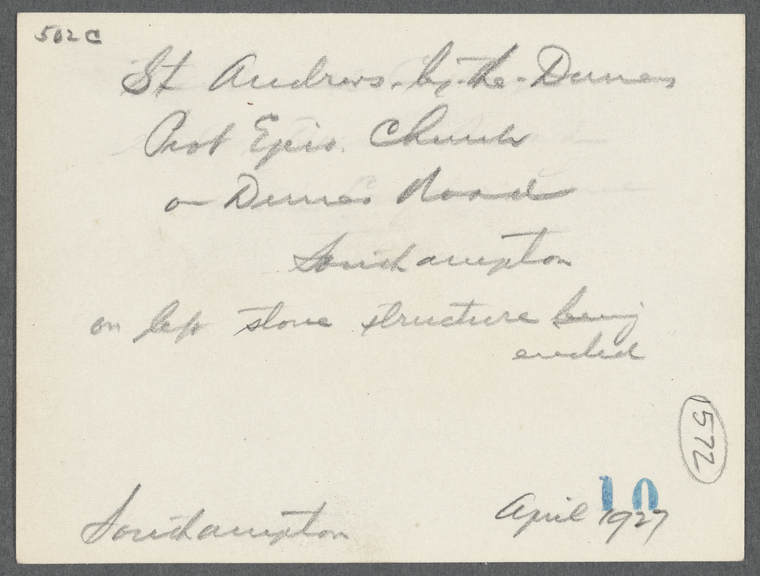 502c
St Andrews-by-the-Dunes
Prot Epis. Church
on Dunes Road
Southampton
on left stone structure being
erected
572
10
Southampton April 1927